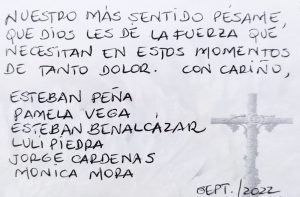 NUESTRO MÁS SENTIDO PÉSAME,
QUE DIOS LES DE LA FUERZA QUE
NECESITAN EN ESTOS MOMENTOS
DE TANTO DOLOR. CON CARIÑO,
ESTEBAN PEÑA
PAMELA VEGA
ESTEBAN BENALCÁZAR
LULI PIEDRA
JORGE CARDENAS
MONICA MORA
SEPT./2022